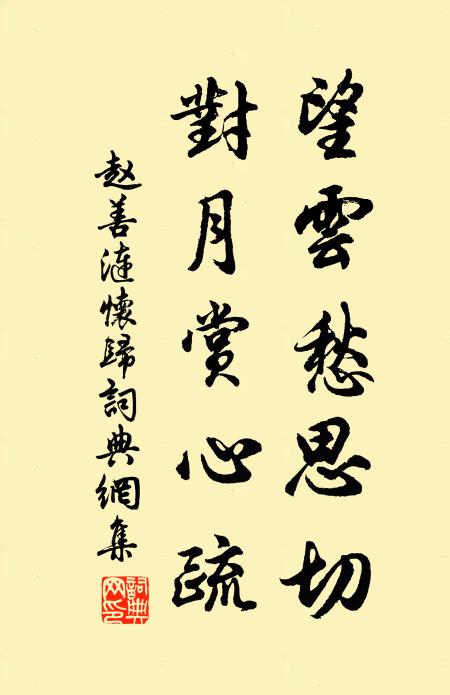 望雲愁思切
對月賞心疏
赵善漣懷歸詞典網集
詞典網印